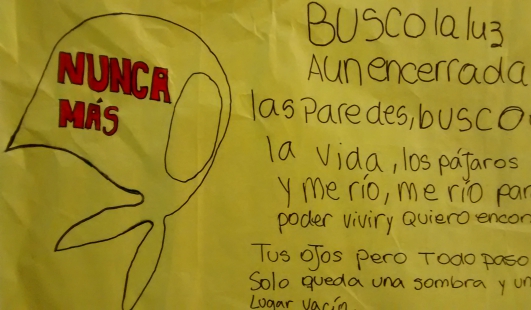 NUNCA
MÁS
BUSCO la luz
AUN encerrada
las Paredes, bUSCO
la vida, los pájaros
y me río, me río par
poder vivir y Quiero encon
Tus oJos pero Todo paso
Solo queda una sombra y un
Lugar vacío